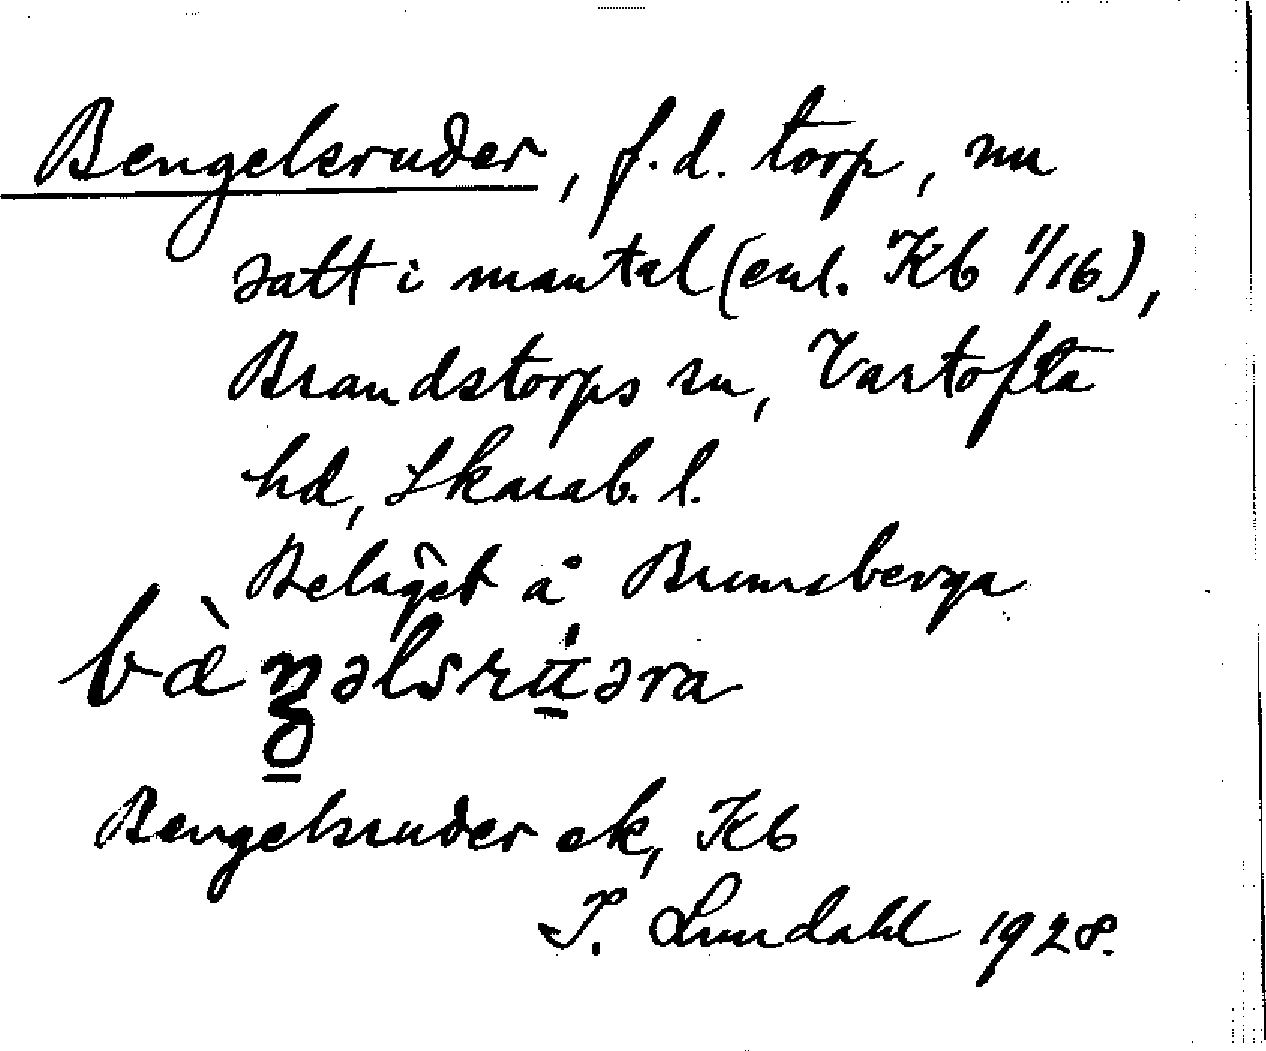 Bengelsruder, f.d. torp, nu
satt i mantal (enl. Kb 1/16),
Brandstorps sn, Vartofta
hd, Skarab. l.
Beläget å Brumsberga
bæ̀ŋəlsrʉ̇əra
Bengelsruder ek, Kb
I. Lundahl 1928.